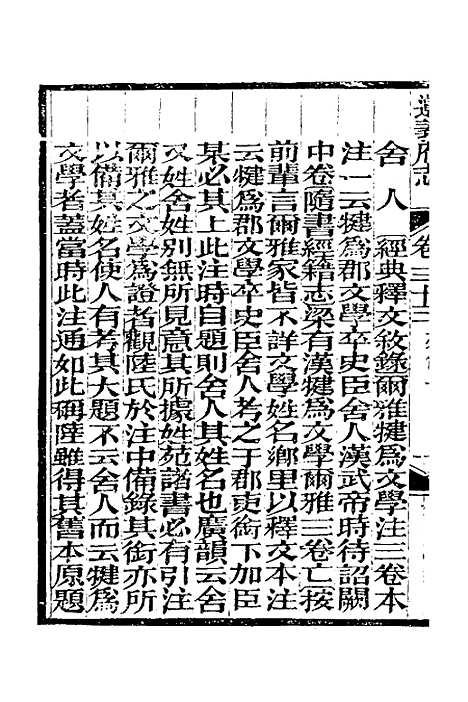 遵義府志 卷三十三
舍人 經典釋文敘錄爾雅犍爲文學注三卷本
注一云犍爲郡文學卒史臣舍人漢武帝時待詔闕
中卷隨書經籍志梁有漢犍爲文學爾雅三卷亡按
前輩言爾雅家皆不詳文學姓名鄉里以釋文本注
云犍爲郡文學卒史臣舍人考之于郡吏銜下加臣
某必其上此注時自題則舍人其姓名也廣韻云舍
又姓舍姓別無所見意其所據姓苑諸書必有引注
爾雅之文學爲證者觀陸氏於注中備錄其銜亦所
以備其姓名使人有考其大題不云舍人而云犍爲
文學者蓋當時此注通如此稱陸雖得其舊本原題